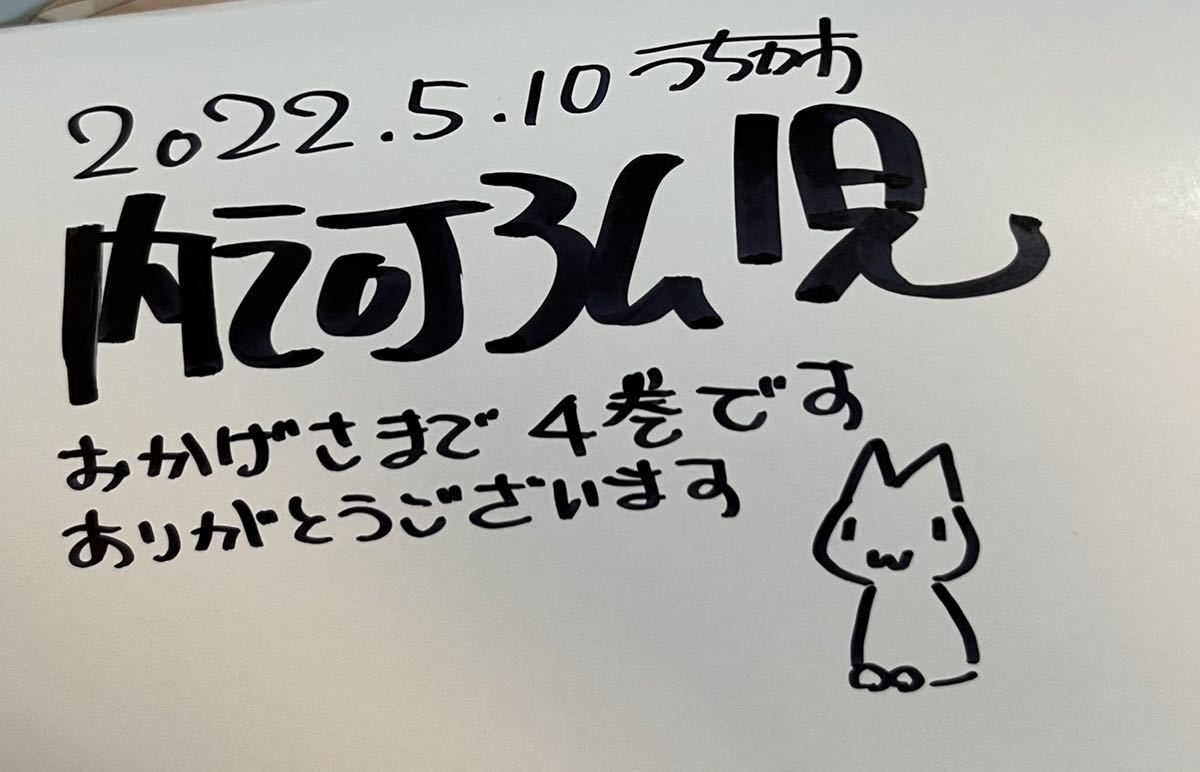 2022.5.10 うちかわ
内河弘児
おかげさまで4巻です
ありがとうございます